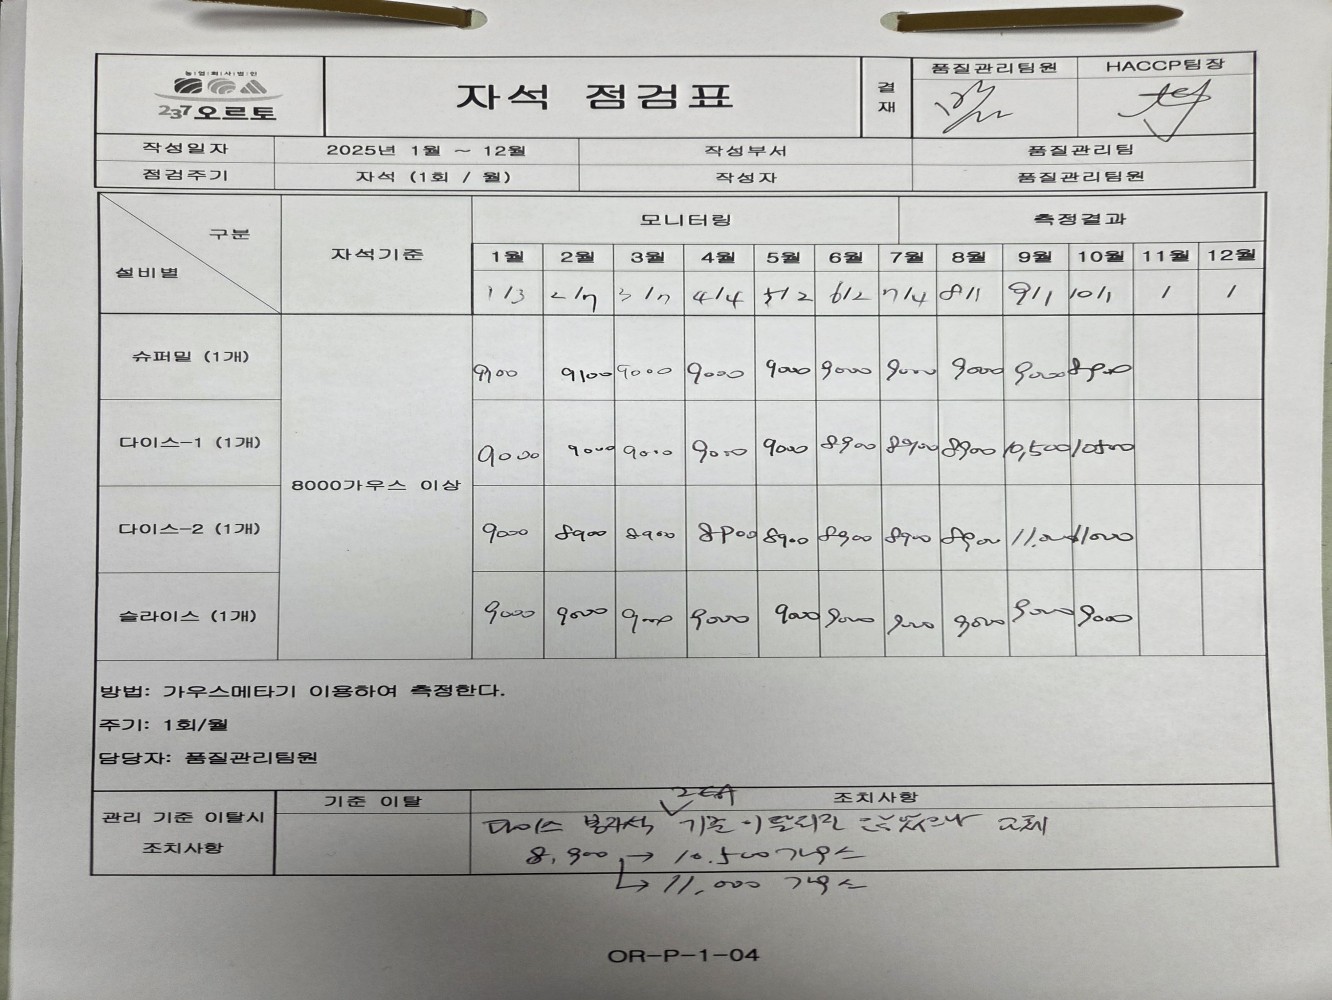 농업회사법인
237 오르토
자석 점검표
결재
품질관리팀원 HACCP팀장
작성일자 2025년 1월 ~ 12월 작성부서 품질관리팀
점검주기 자석 (1회 / 월) 작성자 품질관리팀원
구분
설비별
자석기준
모니터링 측정결과
1월 2월 3월 4월 5월 6월 7월 8월 9월 10월 11월 12월
1/3 2/7 3/7 4/4 5/2 6/2 7/4 8/1 9/1 10/1 / /
8000가우스 이상
슈퍼밀 (1개) 9100 9100 9000 9000 9000 9000 9000 9000 9000 8900
다이스-1 (1개) 9000 9000 9000 9000 9000 8900 8900 8900 10,500 10500
다이스-2 (1개) 9000 8900 8900 8900 8900 8900 8900 8900 11,000 11000
슬라이스 (1개) 9000 9000 9000 9000 9000 9000 9000 9000 9000 9000
방법: 가우스메타기 이용하여 측정한다.
주기: 1회/월
담당자: 품질관리팀원
관리 기준 이탈시
조치사항
기준 이탈 조치사항
2EA
다이스 봉자석 기준이탈리란 교체
8,900 → 10.500가우스
↳ 11,000 가우스
OR-P-1-04